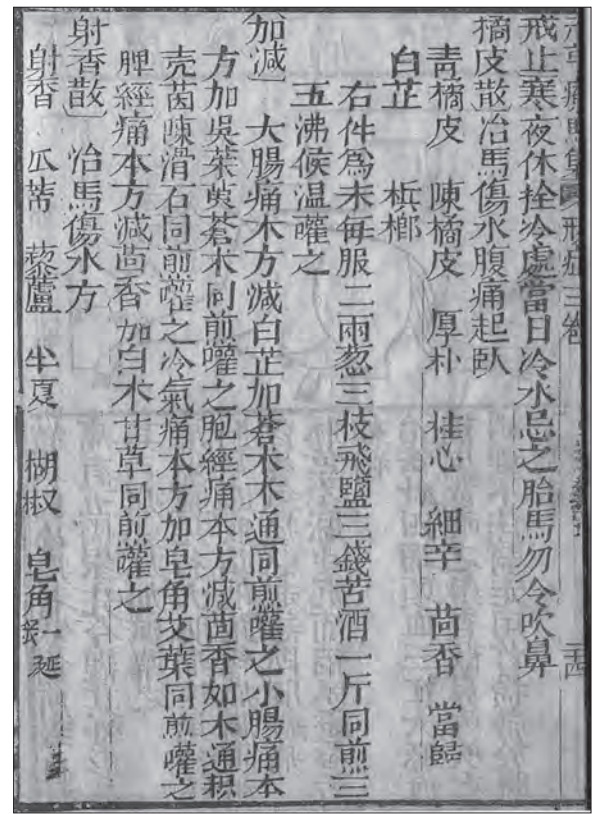 元亨療馬集 形症三卷 二十四
戒止寒夜休拴冷處當日冷水忌之胎馬勿令吹鼻
橘皮散 治馬傷水腹痛起臥
青橘皮 陳橘皮 厚朴 桂心 細辛 茴香 當歸
白芷 梹榔
右件爲末每服二兩葱三枝飛鹽三錢苦酒一斤同煎三
五沸候温嚾之
加减 大腸痛本方减白芷加蒼术木通同煎嚾之小腸痛本
方加吳茱萸蒼术同煎嚾之胞經痛本方减茴香如木通枳
壳茵陳滑石同前嚾之冷氣痛本方加皂角艾葉同煎嚾之
脾經痛本方减茴香加白术甘草同前嚾之
射香散 治馬傷水方
射香 瓜蒂 藜蘆 半夏 楜椒 皂角